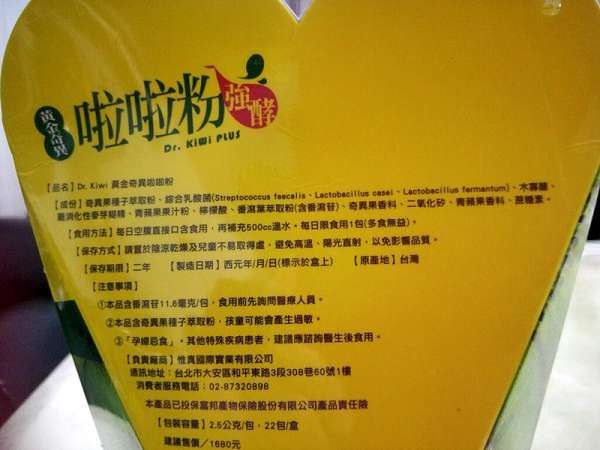 黃金奇異
啦啦粉
強酵
Dr. Kiwi PLUS
【品名】Dr. Kiwi 黃金奇異啦啦粉
【成份】奇異果種子萃取粉、綜合乳酸菌(Streptococcus faecalis、Lactobacillus casei、Lactobacillus fermantum)、木寡醣、
難消化性麥芽糊精、青蘋果果汁粉、檸檬酸、番瀉葉萃取粉(含番瀉苷)、奇異果香料、二氧化矽、青蘋果香料、蔗糖素。
【食用方法】每日空腹直接口含食用，再補充500cc溫水。每日限食用1包(多食無益)。
【保存方式】請置於陰涼乾燥及兒童不易取得處，避免高溫、陽光直射，以免影響品質。
【保存期限】二年 【製造日期】西元年/月/日(標示於盒上) 【原產地】台灣
【注意事項】
①本品含番瀉苷11.6毫克/包，食用前先詢問醫療人員。
②本品含奇異果種子萃取粉，孩童可能會產生過敏。
③「孕婦忌食」。其他特殊疾病患者，建議應諮詢醫生後食用。
【負責廠商】惟真國際實業有限公司
通訊地址：台北市大安區和平東路3段308巷60號1樓
消費者服務電話：02-87320898
本產品已投保富邦產物保險股份有限公司產品責任險
【包裝容量】2.5公克/包，22包/盒
建議售價／1680元